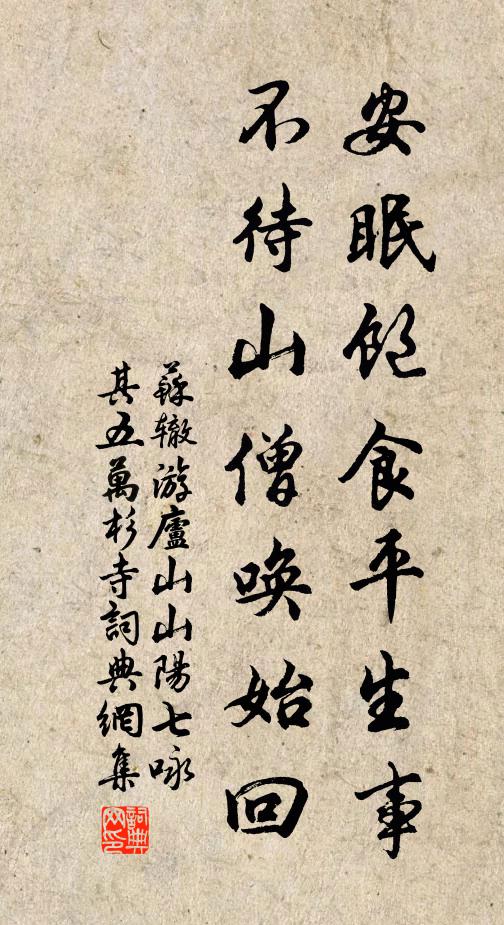 安眠飽食平生事
不待山僧喚始回
蘇辙游廬山山陽七咏
其五萬杉寺詞典網集
詞典
网印